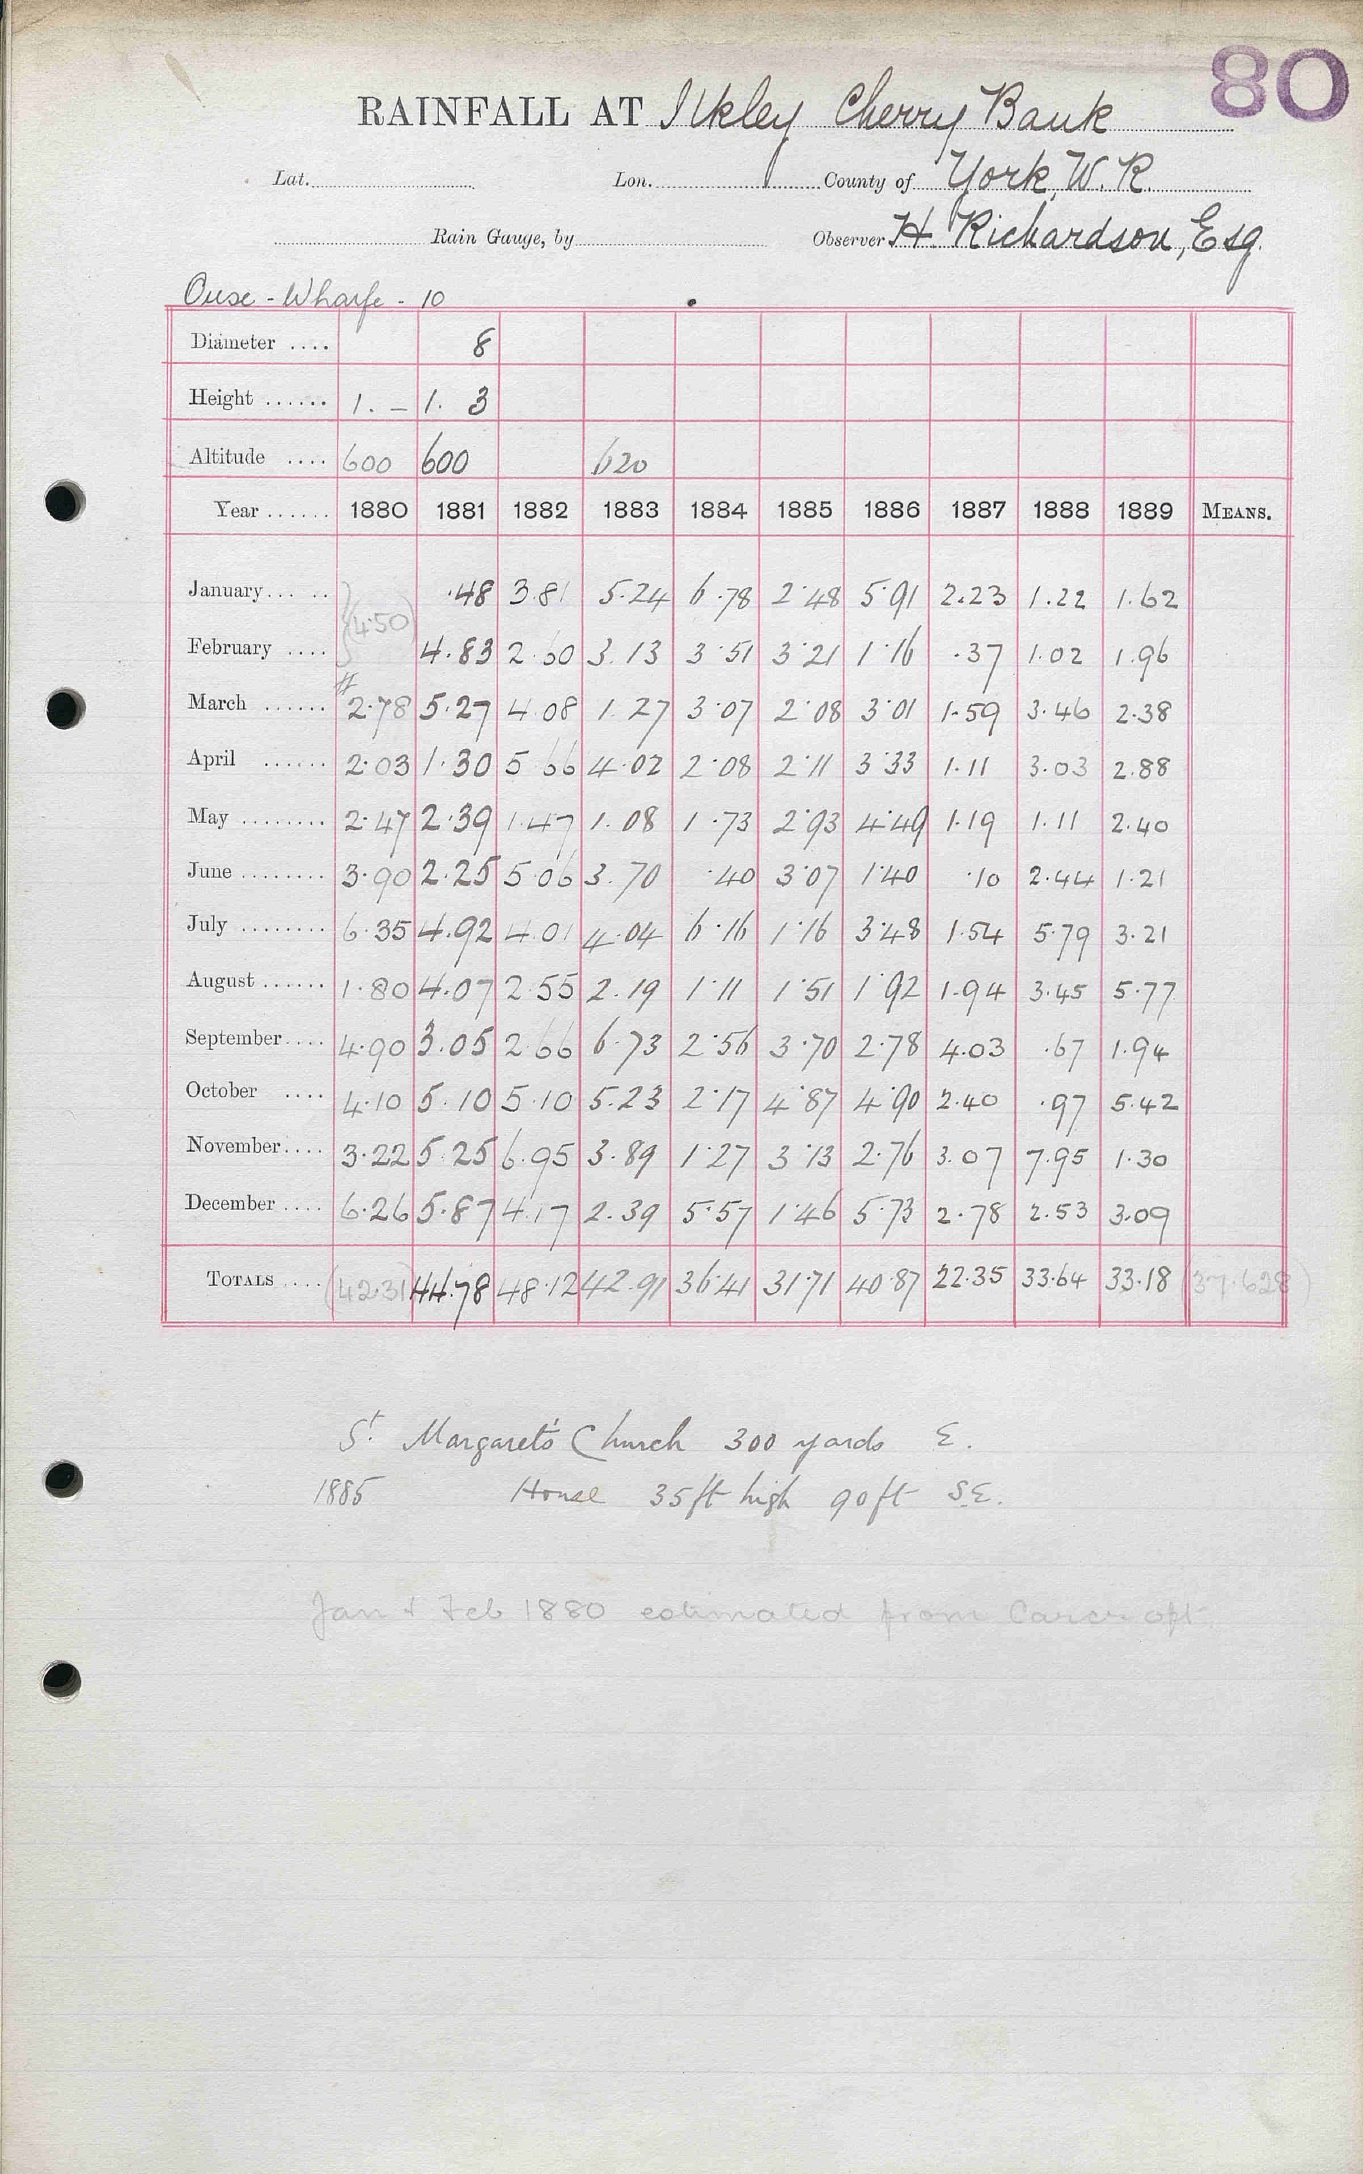 80
RAINFALL AT Ilkley Cherry Bank
Lat. Lon. County of York, W.R.
Rain Gauge, by Observer H. Richardson, Esq.
Ouse - Wharfe - 10
Diameter .... 8
Height ...... 1. – 1. 3
Altitude .... 600 600 620
Year ...... 1880 1881 1882 1883 1884 1885 1886 1887 1888 1889 MEANS.
January ... .. (4.50) .48 3.81 5.24 6.78 2.48 5.91 2.23 1.22 1.62
February .... 4.83 2.60 3.13 3.51 3.21 1.16 .37 1.02 1.96
March ...... 2.78 5.27 4.08 1.27 3.07 2.08 3.01 1.59 3.46 2.38
April ...... 2.03 1.30 5.66 4.02 2.08 2.11 3.33 1.11 3.03 2.88
May ........ 2.47 2.39 1.47 1.08 1.73 2.93 4.49 1.19 1.11 2.40
June ........ 3.90 2.25 5.06 3.70 .40 3.07 1.40 .10 2.44 1.21
July ........ 6.35 4.92 4.01 4.04 6.16 1.16 3.48 1.54 5.79 3.21
August ...... 1.80 4.07 2.55 2.19 1.11 1.51 1.92 1.94 3.45 5.77
September .... 4.90 3.05 2.66 6.73 2.56 3.70 2.78 4.03 .67 1.94
October .... 4.10 5.10 5.10 5.23 2.17 4.87 4.90 2.40 .97 5.42
November .... 3.22 5.25 6.95 3.89 1.27 3.13 2.76 3.07 7.95 1.30
December .... 6.26 5.87 4.17 2.39 5.57 1.46 5.73 2.78 2.53 3.09
TOTALS .... (42.31) 44.78 48.12 42.91 36.41 31.71 40.87 22.35 33.64 33.18 (37.628)
St. Margaret's Church 300 yards E.
1885 House 35ft high 90ft S.E.
Jan & Feb 1880 estimated from